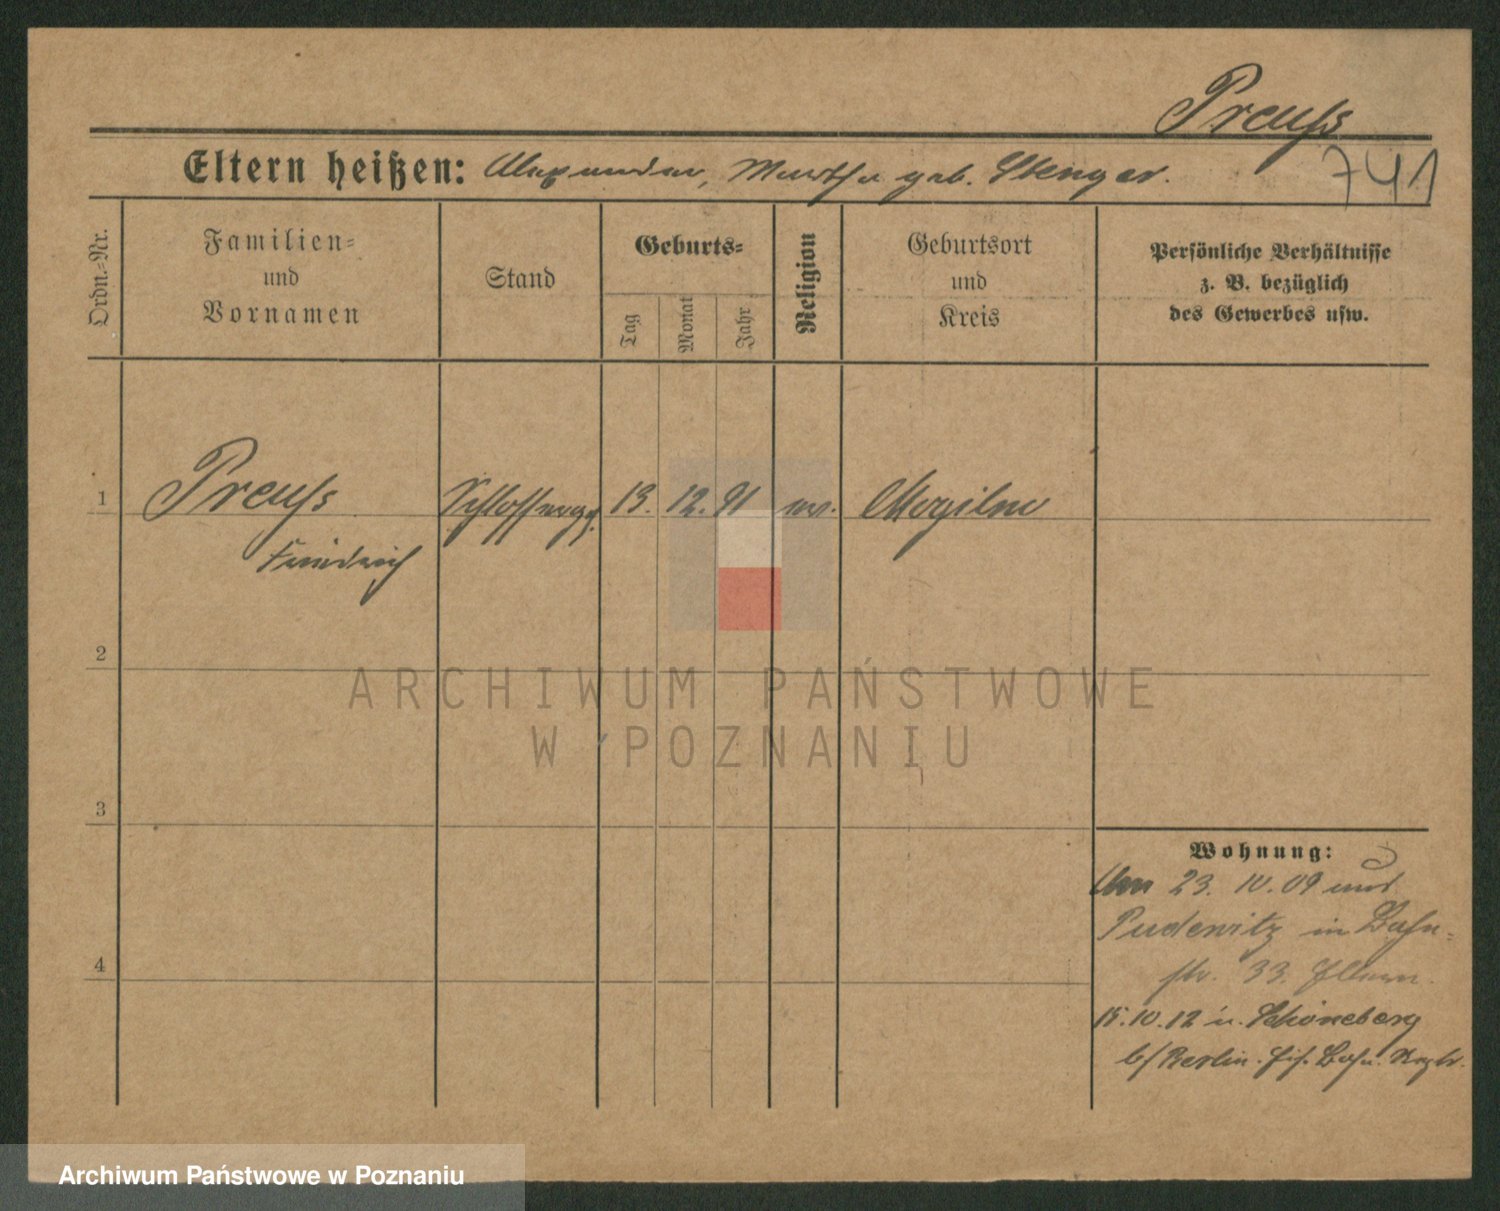 Preuß
Eltern heißen: Alexander, Martha geb. Stenger.
741
Ordn.=Nr.
Familien=
und
Vornamen
Stand
Geburts=
Tag
Monat
Jahr
Religion
Geburtsort
und
Kreis
Persönliche Verhältnisse
z. B. bezüglich
des Gewerbes usw.
1
Preuß Schlosserges. 13. 12. 91 ev. Mogilno
Friedrich
2
3
4
Wohnung:
23. 10. 09
Pudewitz in Bahn=
str. 33. Eltern.
15.10.12 n. Schöneberg
b/ Berlin.
ARCHIWUM PAŃSTWOWE
W POZNANIU
Archiwum Państwowe w Poznaniu